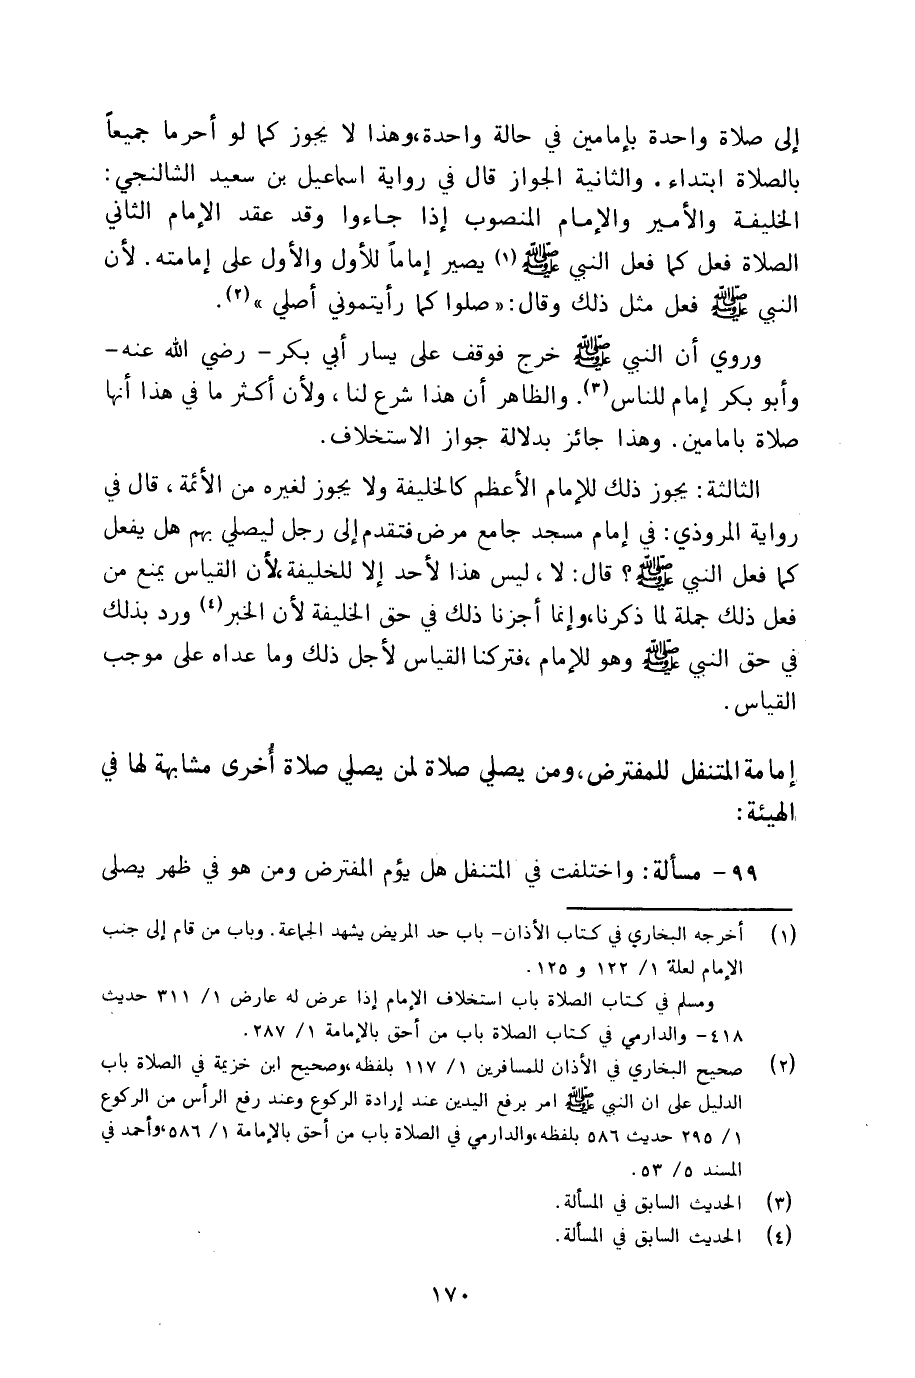 إلى صلاة واحدة بإمامين في حالة واحدة،وهذا لا يجوز كما لو أحرما جميعاً
بالصلاة ابتداء . والثانية الجواز قال في رواية اسماعيل بن سعيد الشالنجي :
الخليفة والأمير والإمام المنصوب إذا جاءوا وقد عقد الإمام الثاني
الصلاة فعل كما فعل النبي ﷺ (١) يصير إماماً للأول والأول على إمامته . لأن
النبي ﷺ فعل مثل ذلك وقال : « صلوا كما رأيتموني أصلي » (٢) .
وروي أن النبي ﷺ خرج فوقف على يسار أبي بكر - رضي الله عنه -
وأبو بكر إمام للناس (٣) . والظاهر أن هذا شرع لنا ، ولأن أكثر ما في هذا أنها
صلاة بامامين . وهذا جائز بدلالة جواز الاستخلاف .
الثالثة : يجوز ذلك للإمام الأعظم كالخليفة ولا يجوز لغيره من الأئمة ، قال في
رواية المروذي : في إمام مسجد جامع مرض فتقدم إلى رجل ليصلي بهم هل يفعل
كما فعل النبي ﷺ ؟ قال : لا ، ليس هذا لأحد إلا للخليفة ،لأن القياس يمنع من
فعل ذلك جملة لما ذكرنا،وإنما أجزنا ذلك في حق الخليفة لأن الخبر (٤) ورد بذلك
في حق النبي ﷺ وهو للإمام ،فتركنا القياس لأجل ذلك وما عداه على موجب
القياس .
إمامة المتنفل للمفترض،ومن يصلي صلاة لمن يصلي صلاة أُخرى مشابهة لها في
الهيئة :
٩٩ - مسألة : واختلفت في المتنفل هل يؤم المفترض ومن هو في ظهر يصلى
(١) أخرجه البخاري في كتاب الأذان - باب حد المريض يشهد الجماعة . وباب من قام إلى جنب
الإمام لعلة ١/ ١٢٢ و ١٢٥ .
ومسلم في كتاب الصلاة باب استخلاف الإمام إذا عرض له عارض ١/ ٣١١ حديث
٤١٨ - والدارمي في كتاب الصلاة باب من أحق بالإمامة ١/ ٢٨٧ .
(٢) صحيح البخاري في الأذان للمسافرين ١/ ١١٧ بلفظه ،وصحيح ابن خزيمة في الصلاة باب
الدليل على ان النبي ﷺ امر برفع اليدين عند إرادة الركوع وعند رفع الرأس من الركوع
١/ ٢٩٥ حديث ٥٨٦ بلفظه ،والدارمي في الصلاة باب من أحق بالإمامة ١/ ٥٨٦ ،وأحمد في
المسند ٥/ ٥٣ .
(٣) الحديث السابق في المسألة .
(٤) الحديث السابق في المسألة .
١٧٠